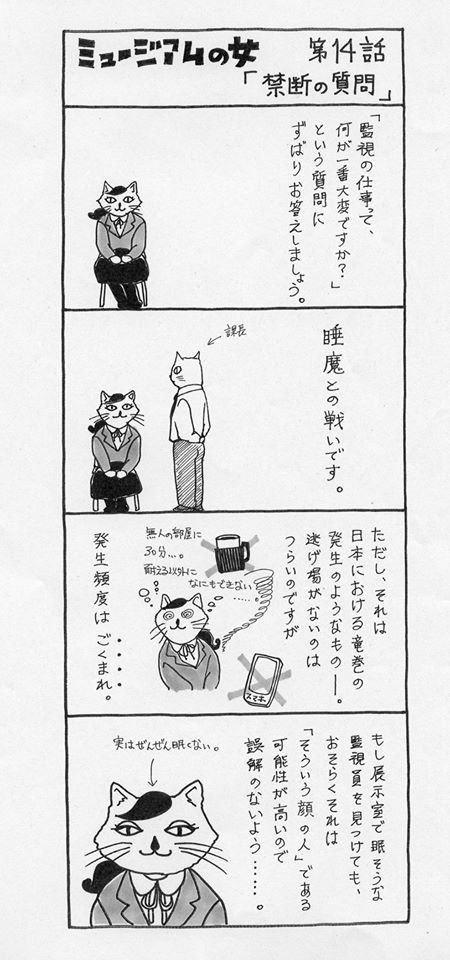 ミュージアムの女
第14話
「禁断の質問」
「監視の仕事って、
何が一番大変ですか？」
という質問に
ずばりお答えしましょう。
睡魔との戦いです。
課長
ただし、それは
日本における竜巻の
発生のようなもの―。
逃げ場がないのは
つらいのですが
無人の部屋に
30分…。
耐える以外に
なにもできない
……。
スマホ
発生頻度は ごくまれ。
もし展示室で眠そうな
監視員を見つけても、
おそらくそれは
「そういう顔の人」である
可能性が高いので
誤解のないよう……。
実はぜんぜん眠くない。